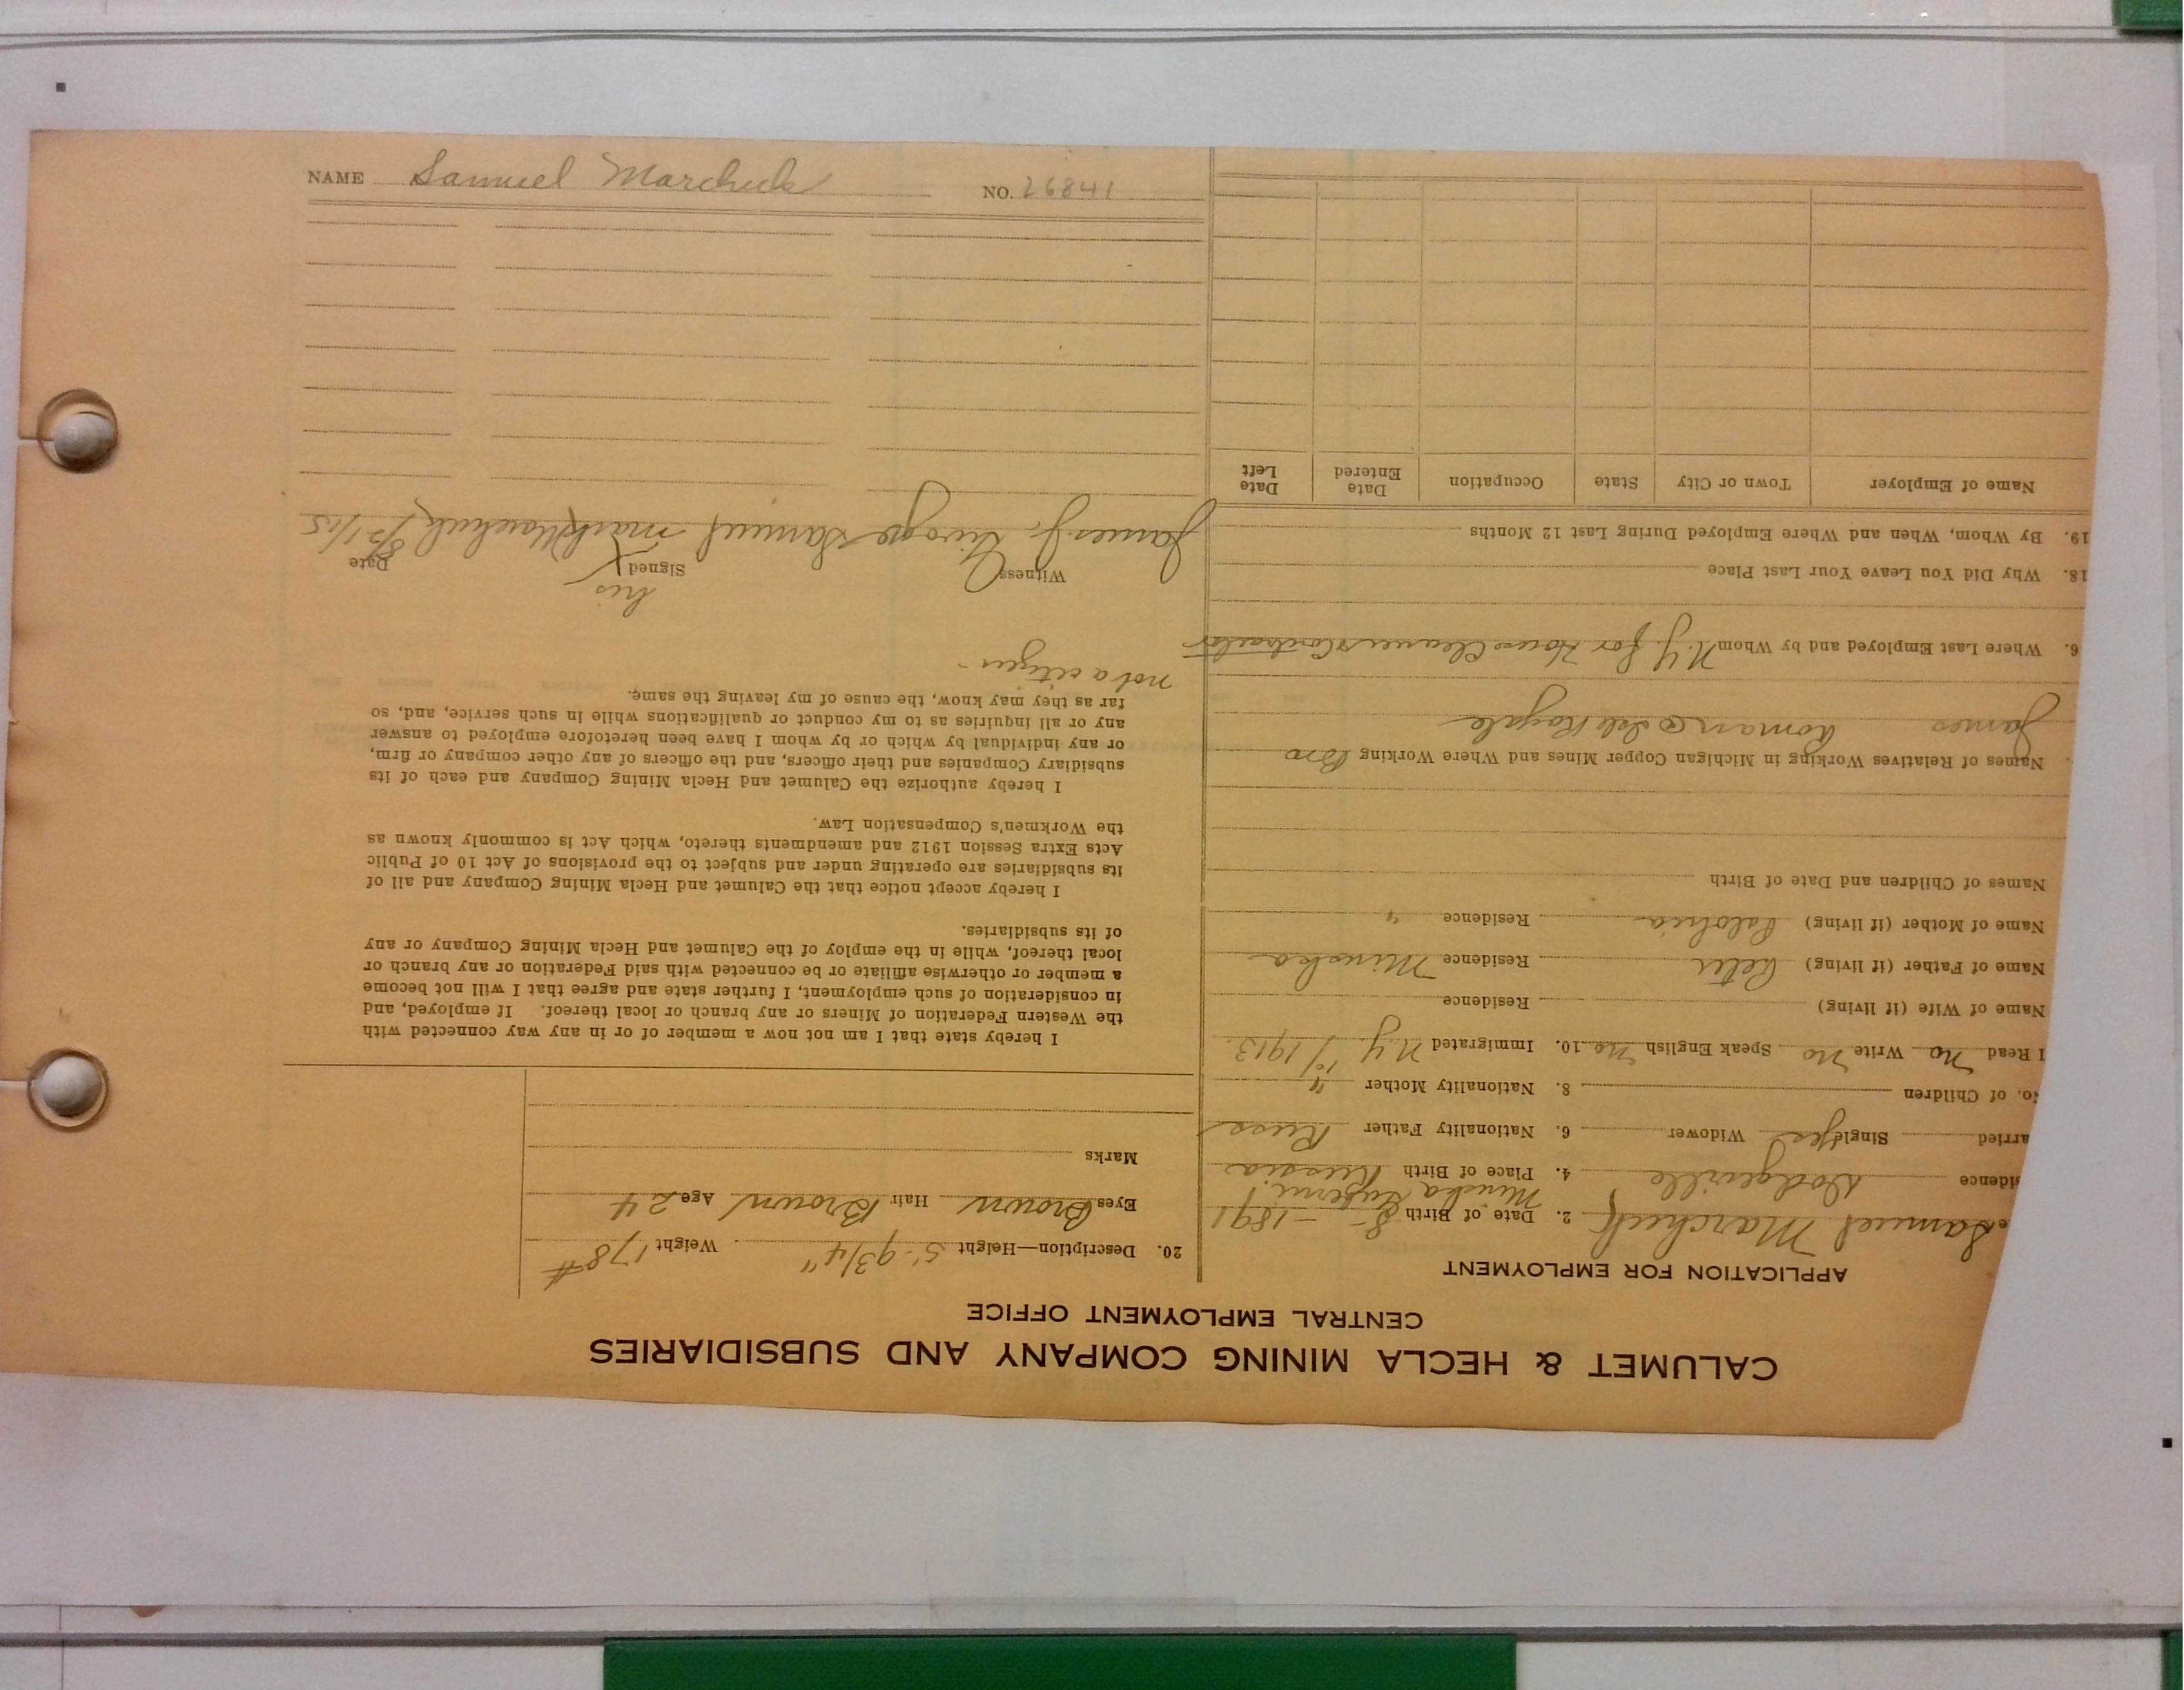 CALUMET & HECLA MINING COMPANY AND SUBSIDIARIES
CENTRAL EMPLOYMENT OFFICE
APPLICATION FOR EMPLOYMENT
e Samuel Marchuk 2. Date of Birth 8 - - 1891
sidence Dodgeville 4. Place of Birth Minska Russia
arried Single yes Widower 6. Nationality Father Russ
No. of Children 8. Nationality Mother "
I Read no Write no Speak English no 10. Immigrated N.Y. 10/1913.
Name of Wife (if living) Residence
Name of Father (if living) Peter Residence Minska
Name of Mother (if living) Residence "
Names of Children and Date of Birth
Names of Relatives Working in Michigan Copper Mines and Where Working Bro
James Roman @ Isle Royale
6. Where Last Employed and by Whom N.Y. for House Cleaners Contractor
18. Why Did You Leave Your Last Place
19. By Whom, When and Where Employed During Last 12 Months
Name of Employer Town or City State Occupation Date Entered Date Left
20. Description—Height 5'-9 3/4" Weight 178#
Eyes Brown Hair Brown Age 24
Marks
I hereby state that I am not now a member of or in any way connected with
the Western Federation of Miners or any branch or local thereof. If employed, and
in consideration of such employment, I further state and agree that I will not become
a member or otherwise affiliate or be connected with said Federation or any branch or
local thereof, while in the employ of the Calumet and Hecla Mining Company or any
of its subsidiaries.
I hereby accept notice that the Calumet and Hecla Mining Company and all of
its subsidiaries are operating under and subject to the provisions of Act 10 of Public
Acts Extra Session 1912 and amendments thereto, which Act is commonly known as
the Workmen's Compensation Law.
I hereby authorize the Calumet and Hecla Mining Company and each of its
subsidiary Companies and their officers, and the officers of any other company or firm,
or any individual by which or by whom I have been heretofore employed to answer
any or all inquiries as to my conduct or qualifications while in such service, and, so
far as they may know, the cause of my leaving the same.
not a citizen -
his
Witness Signed X Date
James J. Samuel mark Marchuk 8/21/15
NAME Samuel Marchuk NO. 26841